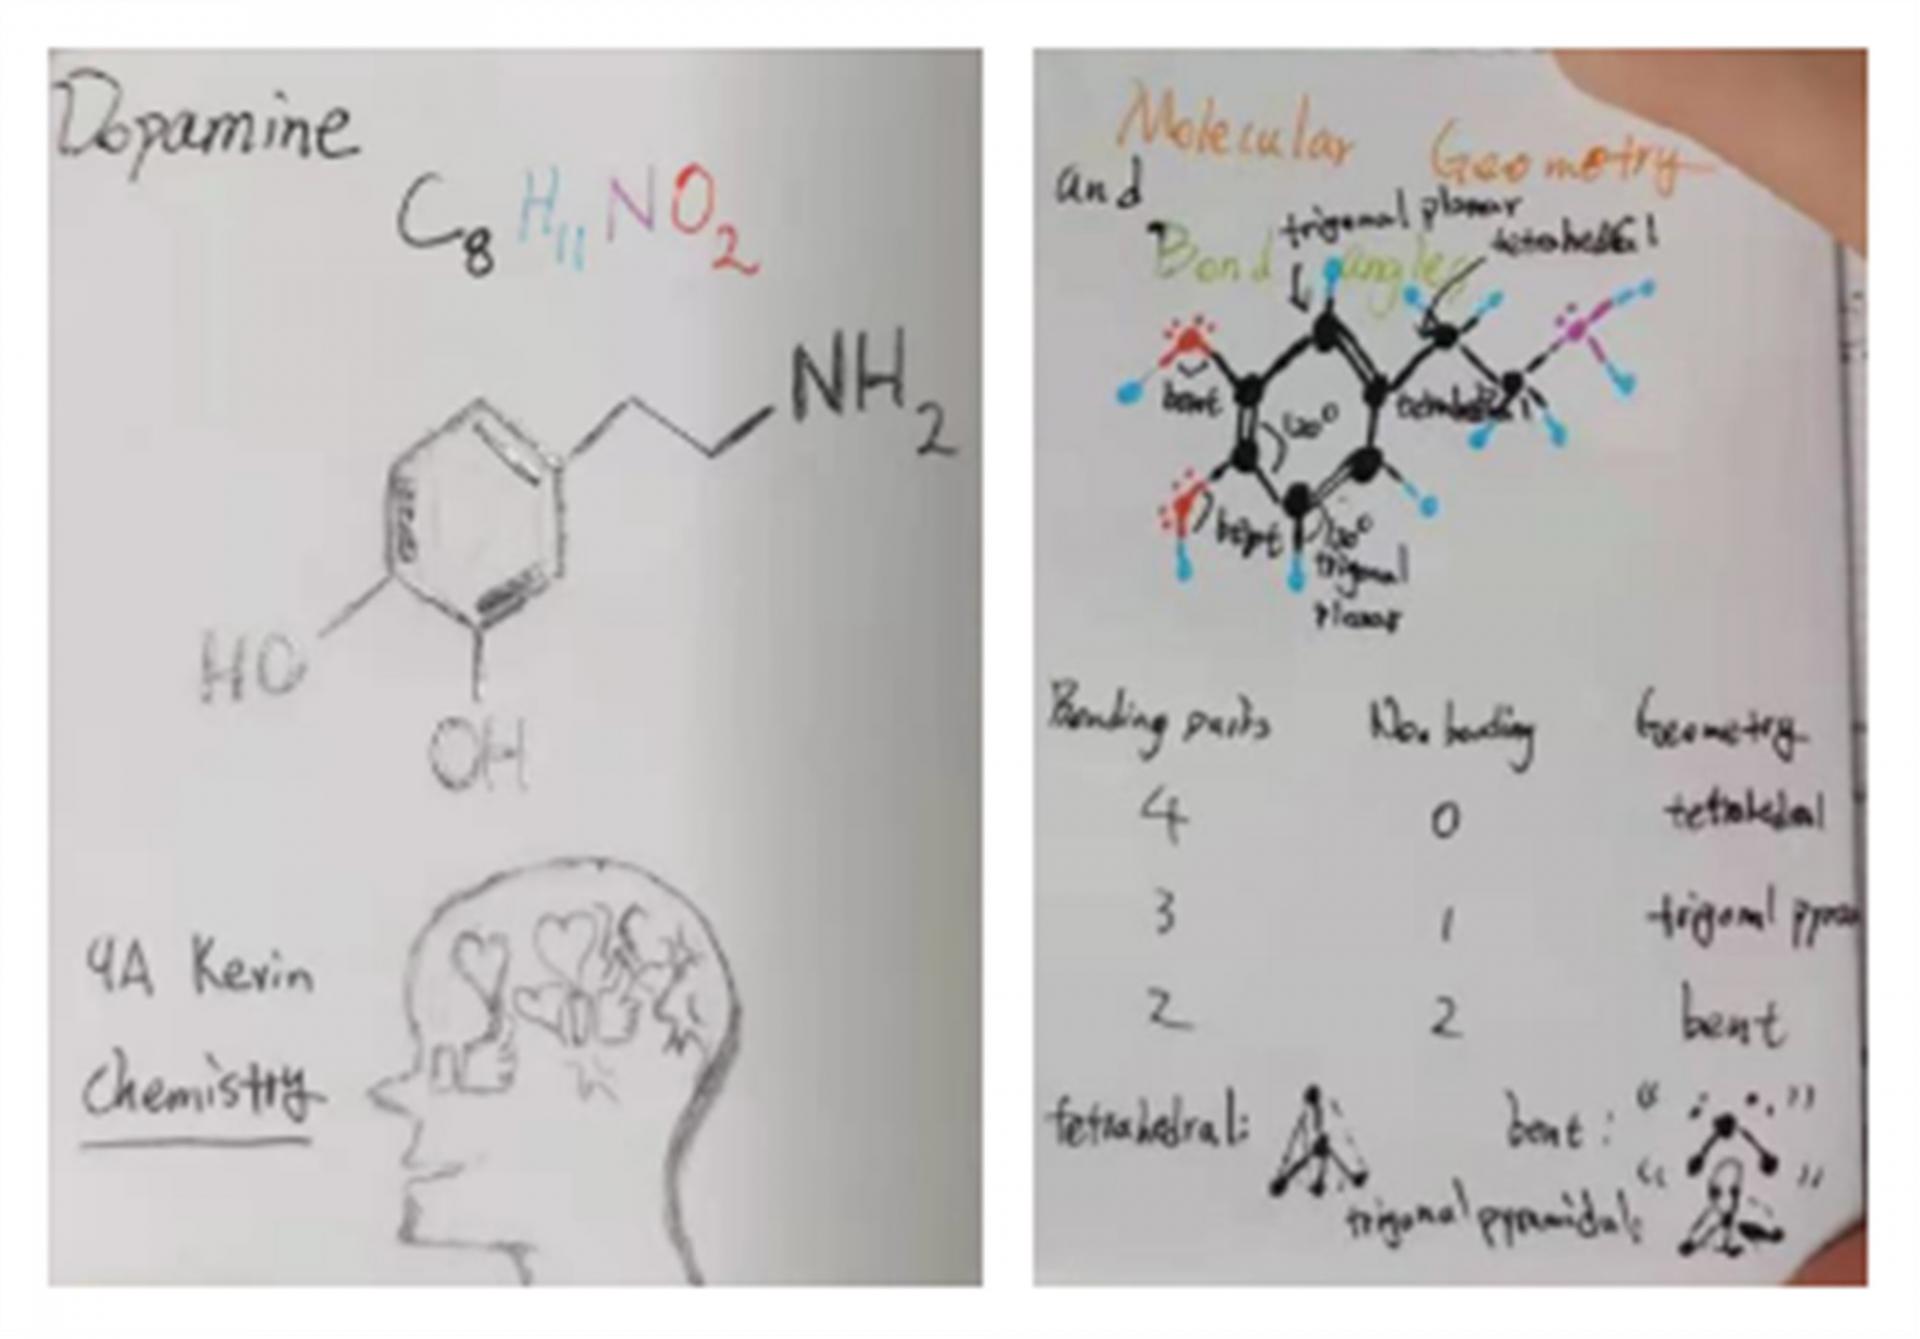 Dopamine
C8 H11 N O2
NH2
HO
OH
4A Kevin
Chemistry
Molecular Geometry
and
Bond angles
trigonal planar
tetrahedral
bent
120°
tetrahedral
bent
120°
trigonal
planar
Bonding pairs Non bonding Geometry
4 0 tetrahedral
3 1 trigonal
2 2 bent
tetrahedral: bent: “ ”
trigonal pyramidal: “ ”